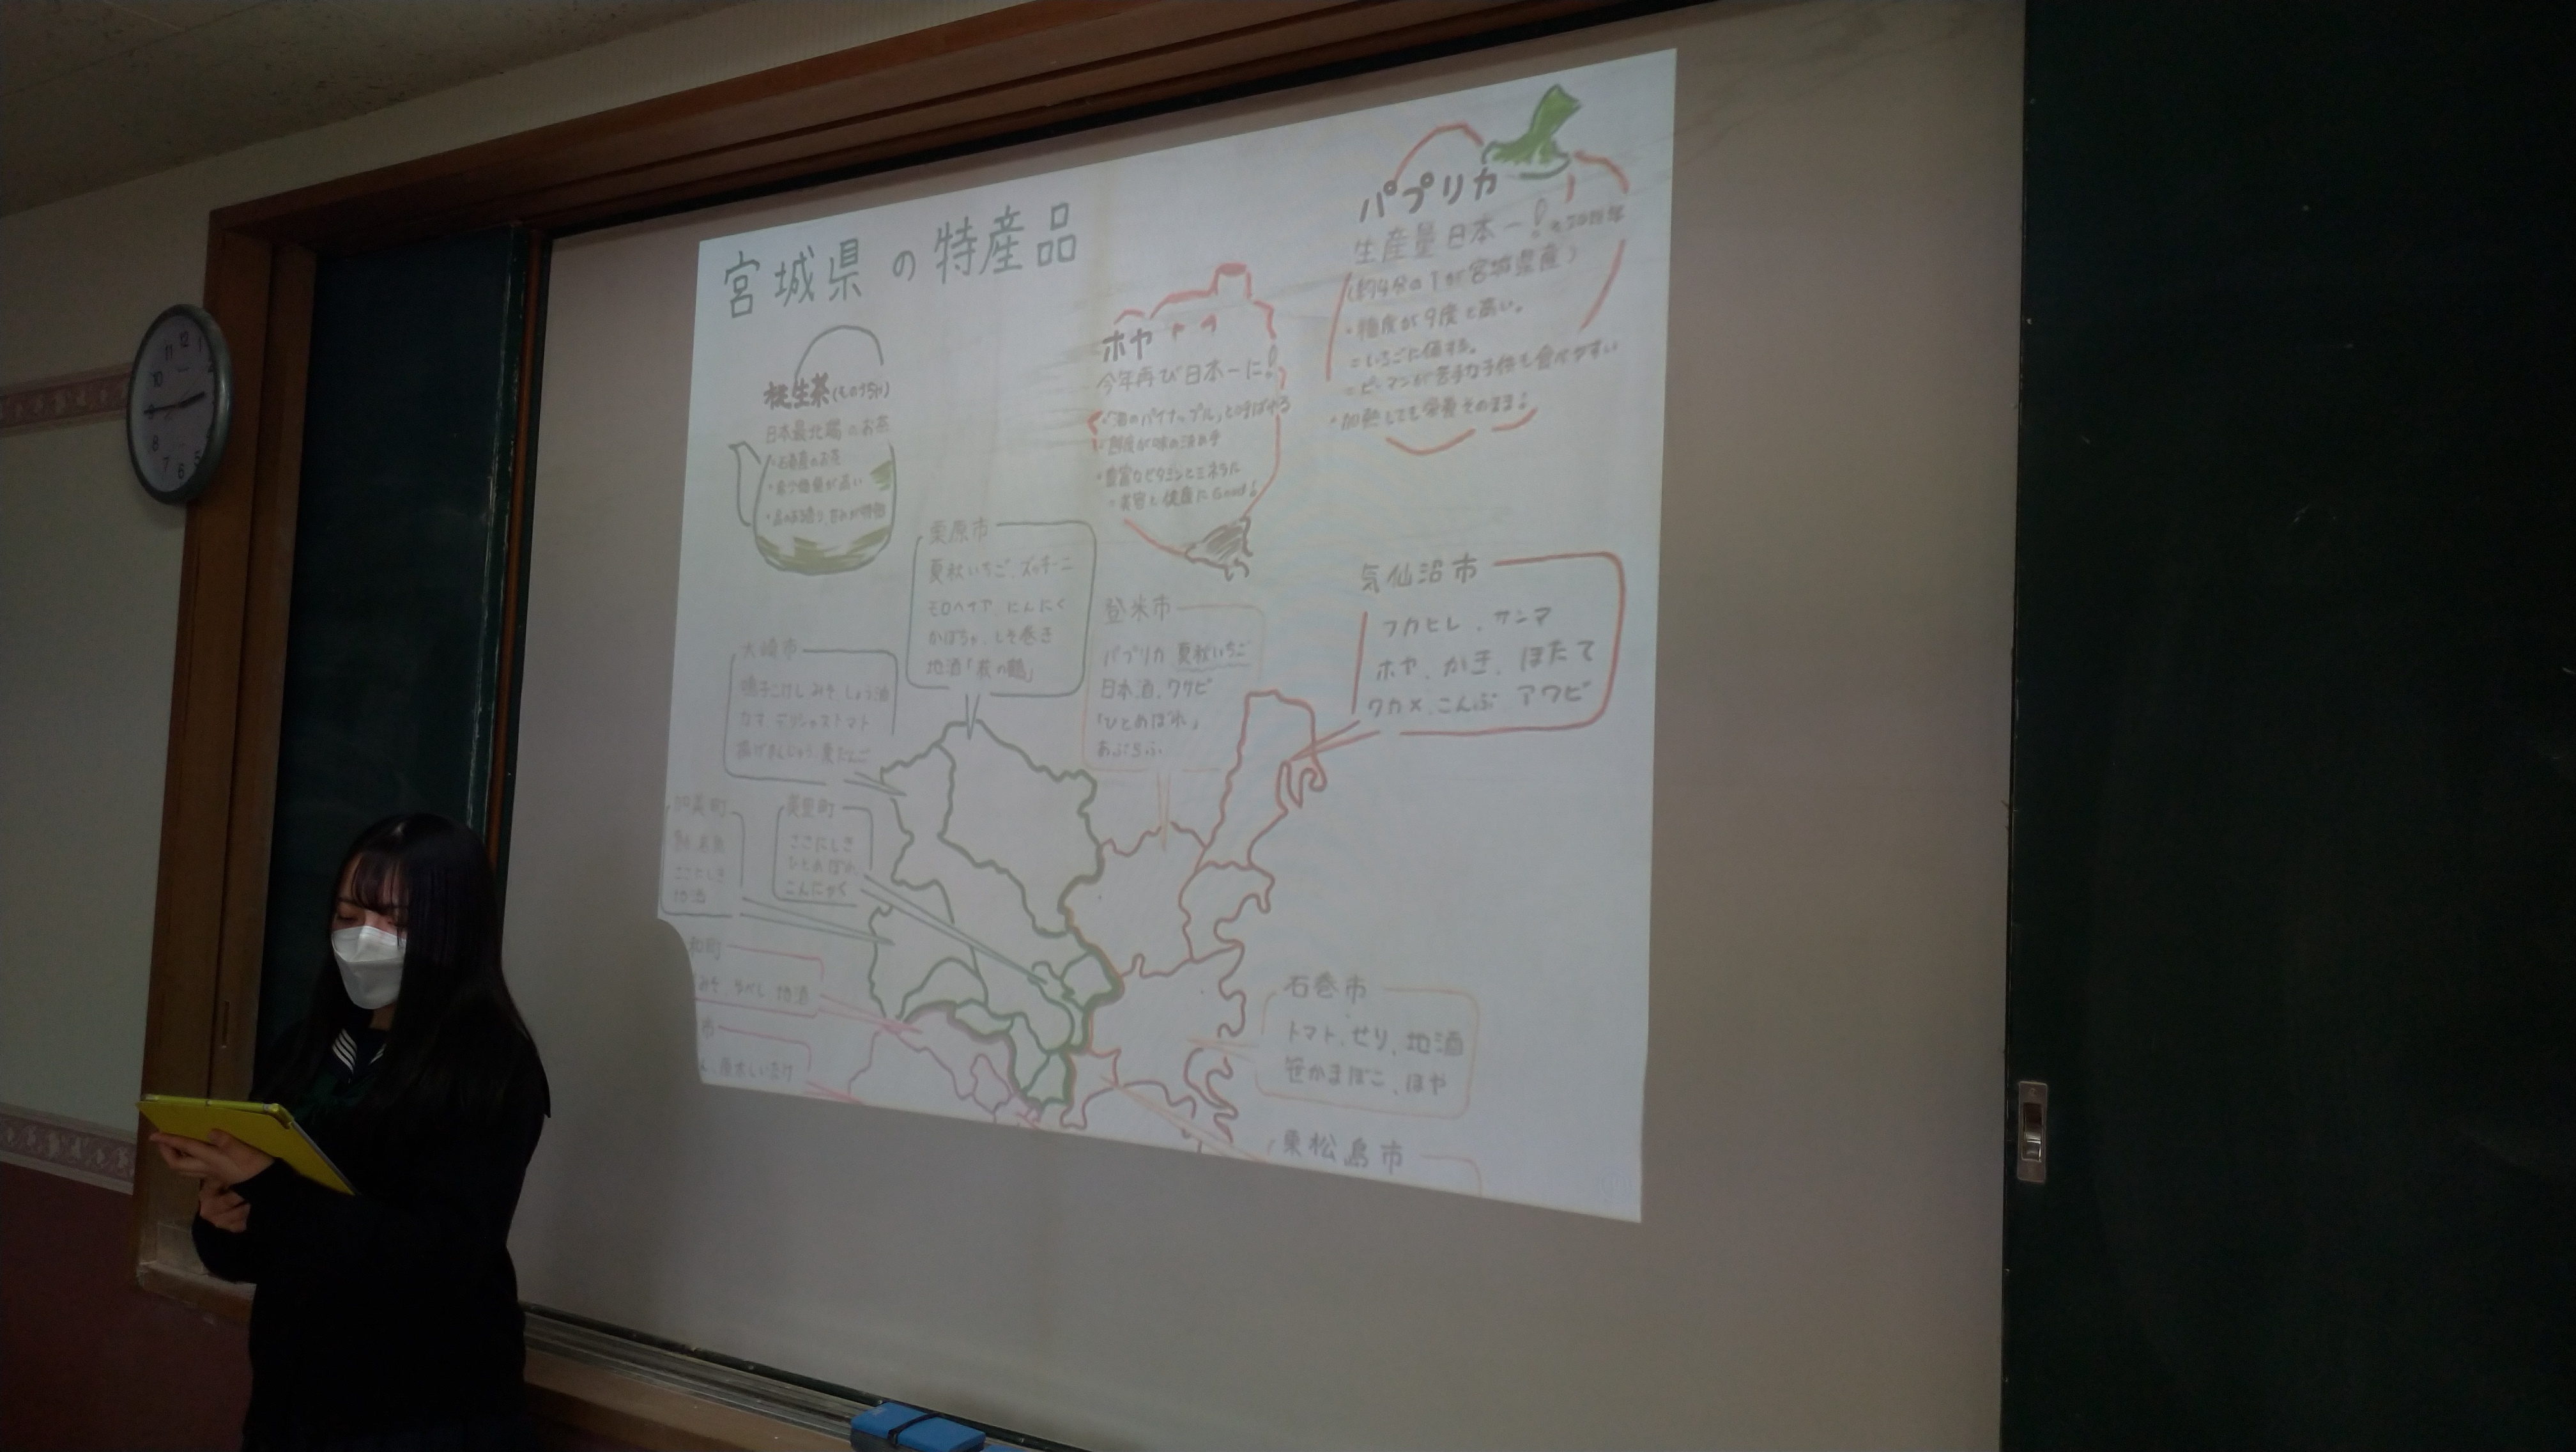 宮城県の特産品
パプリカ
生産量日本一!
(約4分の1が宮城県産)
・糖度が9度と高い。
=いちごに値する。
=ピーマンが苦手な子供も食べやすい
・加熱しても栄養そのまま!
ホヤ
今年再び日本一に!
・「海のパイナップル」と呼ばれる
・鮮度が味の決め手
・豊富なビタミンとミネラル
美容と健康にGood!
桃生茶(ものうちゃ)
日本最北端のお茶
・石巻産のお茶
・希少価値が高い
栗原市
夏秋いちご、ズッキーニ
モロヘイヤ、にんにく
かぼちゃ、しそ巻き
地酒「萩の鶴」
登米市
パプリカ 夏秋いちご
日本酒、ワサビ
「ひとめぼれ」
あぶらふ
気仙沼市
フカヒレ、サンマ
ホヤ、かき、ほたて
ワカメ、こんぶ アワビ
大崎市
鳴子こけし みそ しょう油
デリシャストマト
揚げまんじゅう
加美町
ここにしき
地酒
美里町
ささにしき
ひとめぼれ
こんにゃく
和町
みそ 地酒
市
ん、原木しいたけ
石巻市
トマト、せり、地酒
笹かまぼこ、ほや
東松島市
12
1
5
6
7
8
9
10
11